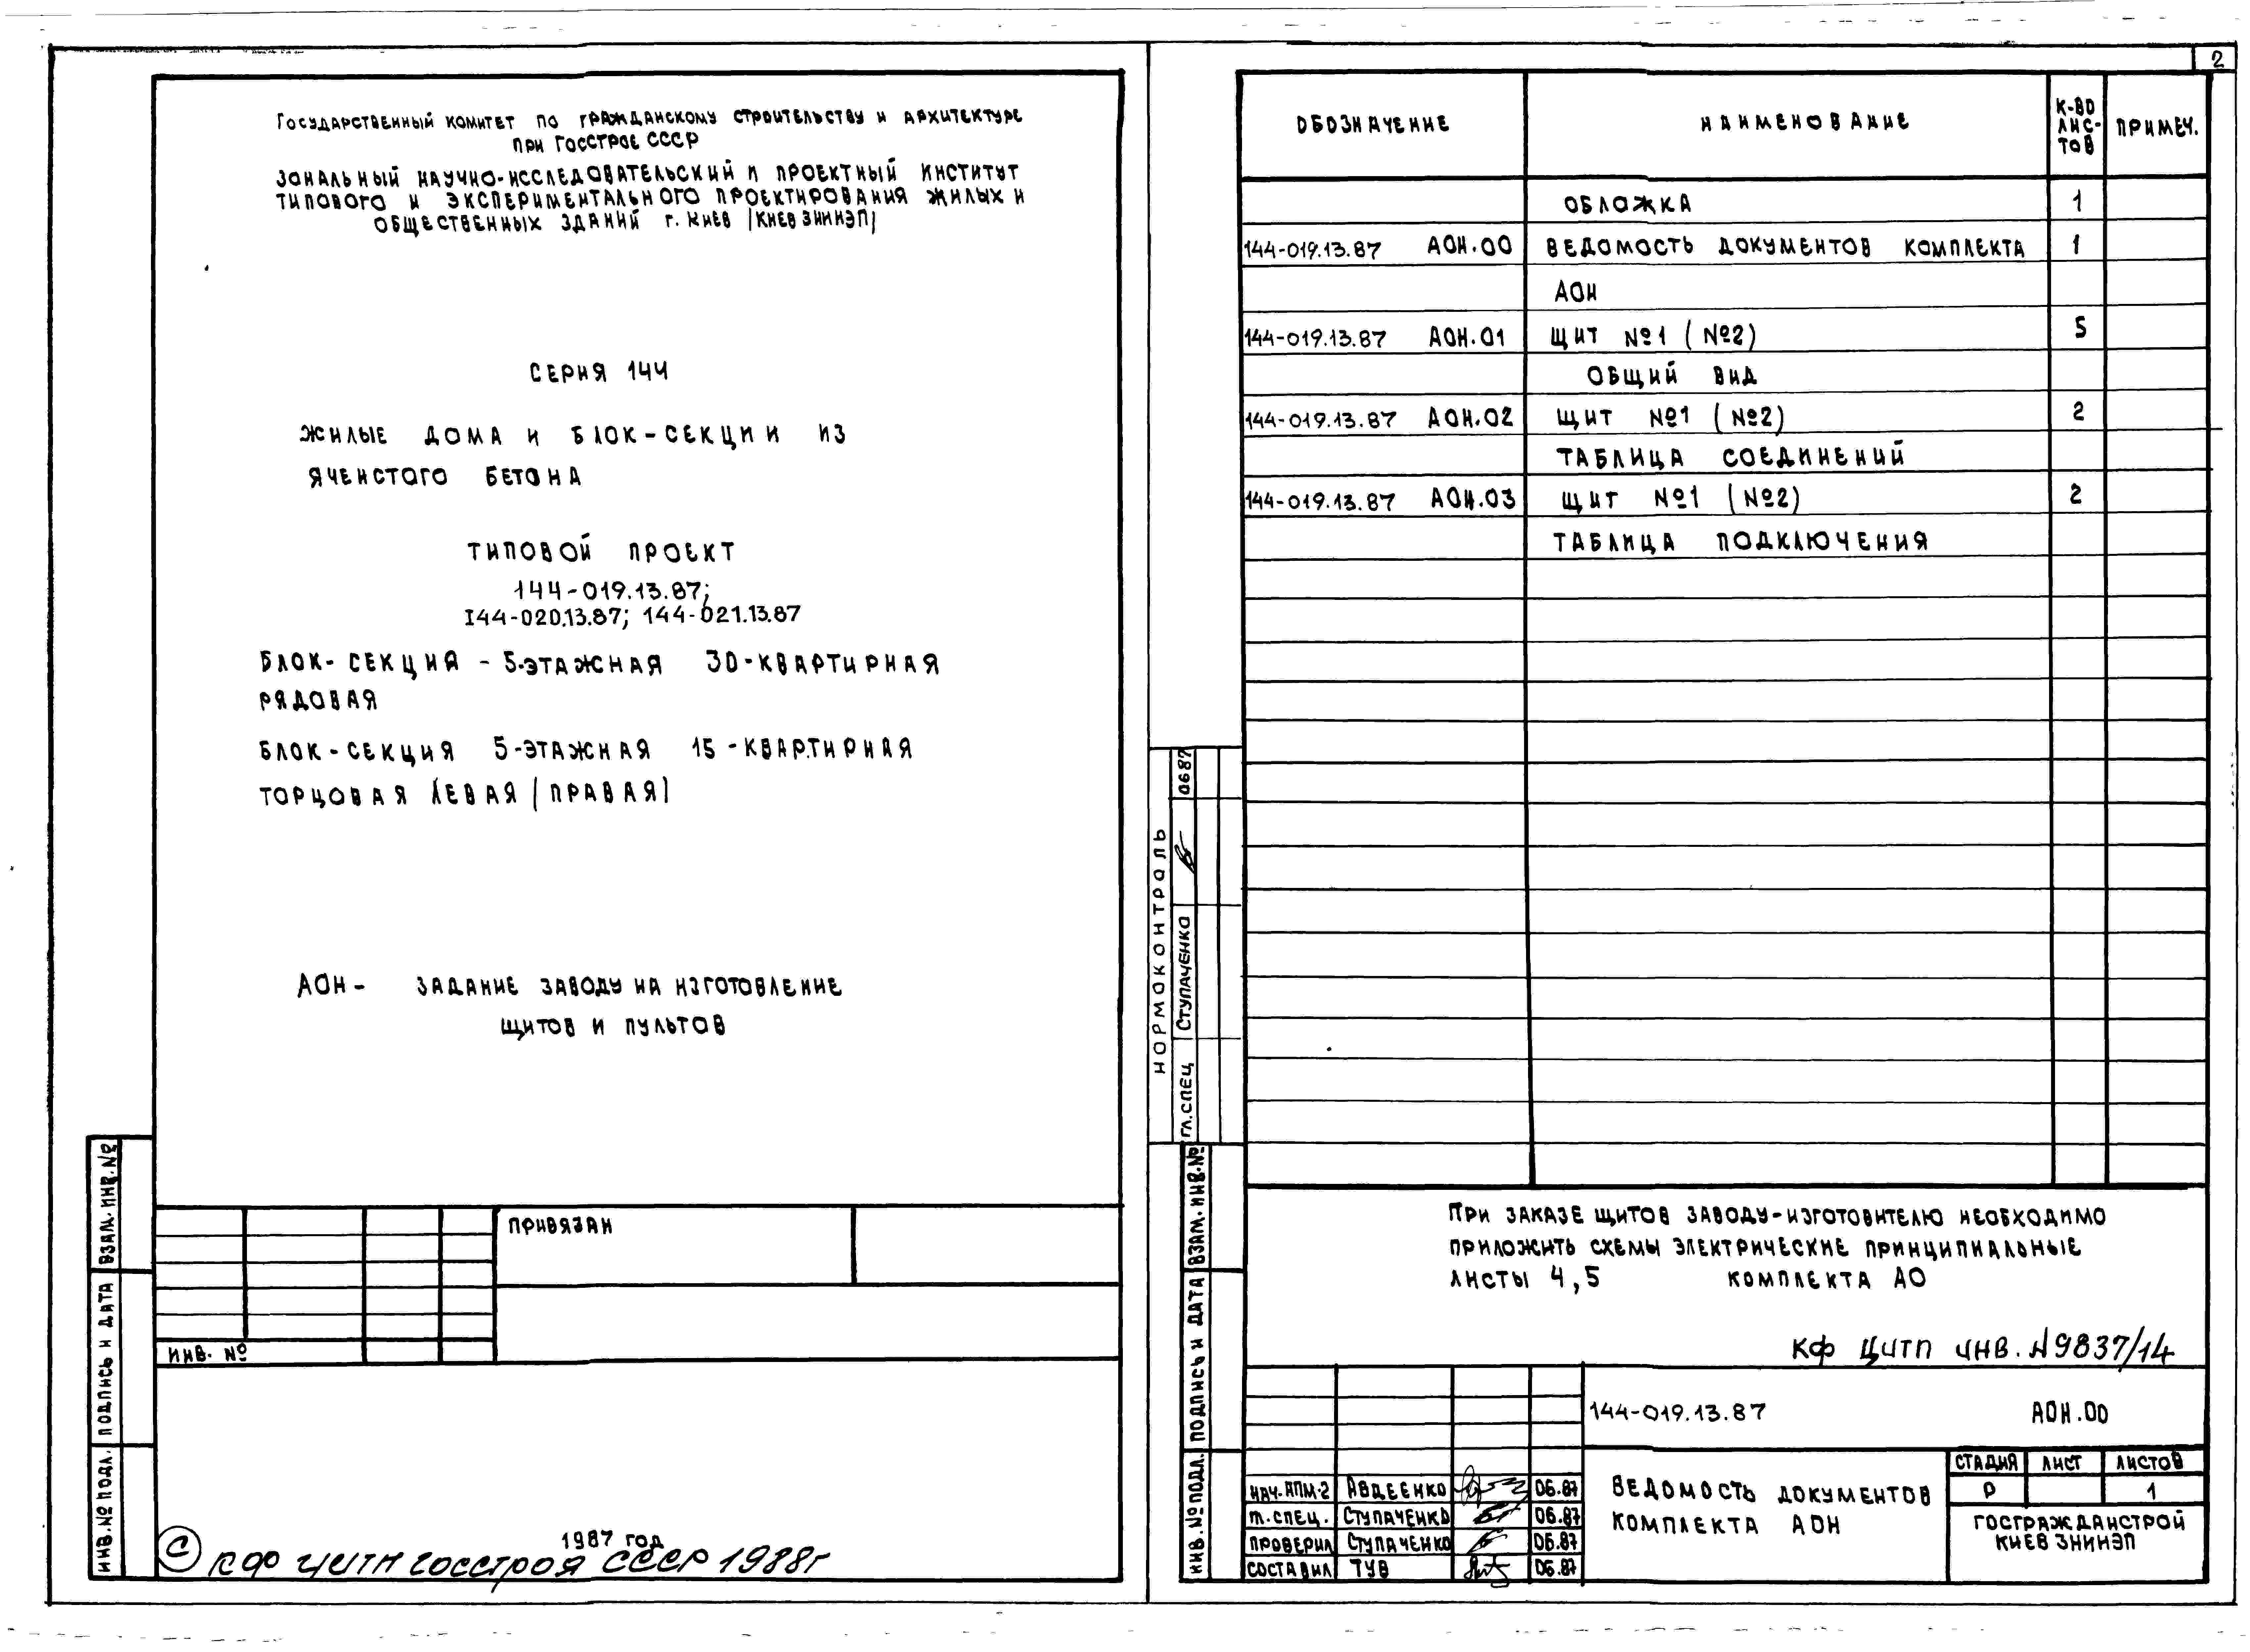 Государственный комитет по гражданскому строительству и архитектуре
при Госстрое СССР
Зональный научно-исследовательский и проектный институт
типового и экспериментального проектирования жилых и
общественных зданий г. Киев (КиевЗНИИЭП)
Серия 144
Жилые дома и блок-секции из
ячеистого бетона
Типовой проект
144-019.13.87;
144-020.13.87; 144-021.13.87
Блок-секция - 5-этажная 30-квартирная
рядовая
Блок-секция 5-этажная 15-квартирная
торцовая левая (правая)
АОН - Задание заводу на изготовление
щитов и пультов
Привязан
Инв. №
1987 год
© КФ ЦИТП Госстроя СССР 1988г
Взам. инв. №
Подпись и дата
Инв. № подл.
2
Обозначение Наименование К-во лис-тов Примеч.
Обложка 1
144-019.13.87 АОН.00 Ведомость документов комплекта 1
АОН
144-019.13.87 АОН.01 Щит №1 (№2) 5
Общий вид
144-019.13.87 АОН.02 Щит №1 (№2) 2
Таблица соединений
144-019.13.87 АОН.03 Щит №1 (№2) 2
Таблица подключения
Нормоконтроль
Гл.спец Ступаченко 0687
Взам. инв. №
Подпись и дата
Инв. № подл.
При заказе щитов заводу-изготовителю необходимо
приложить схемы электрические принципиальные
листы 4,5 комплекта АО
КФ ЦИТП инв. №9837/14
144-019.13.87 АОН.00
Нач. АПМ-2 Авдеенко 06.87
Гл. спец. Ступаченко 06.87
Проверил Ступаченко 06.87
Составил Тув 06.87
Ведомость документов
комплекта АОН
Стадия Лист Листов
Р 1
Госгражданстрой
КиевЗНИИЭП